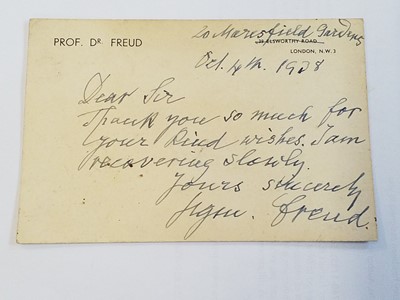 PROF. DR. FREUD
20 Maresfield Gardens
39 ELSWORTHY ROAD
LONDON, N.W.3
Oct. 4th. 1938
Dear Sir
Thank you so much for
your kind wishes. I am
recovering slowly.
Yours sincerely
Sigm. Freud.